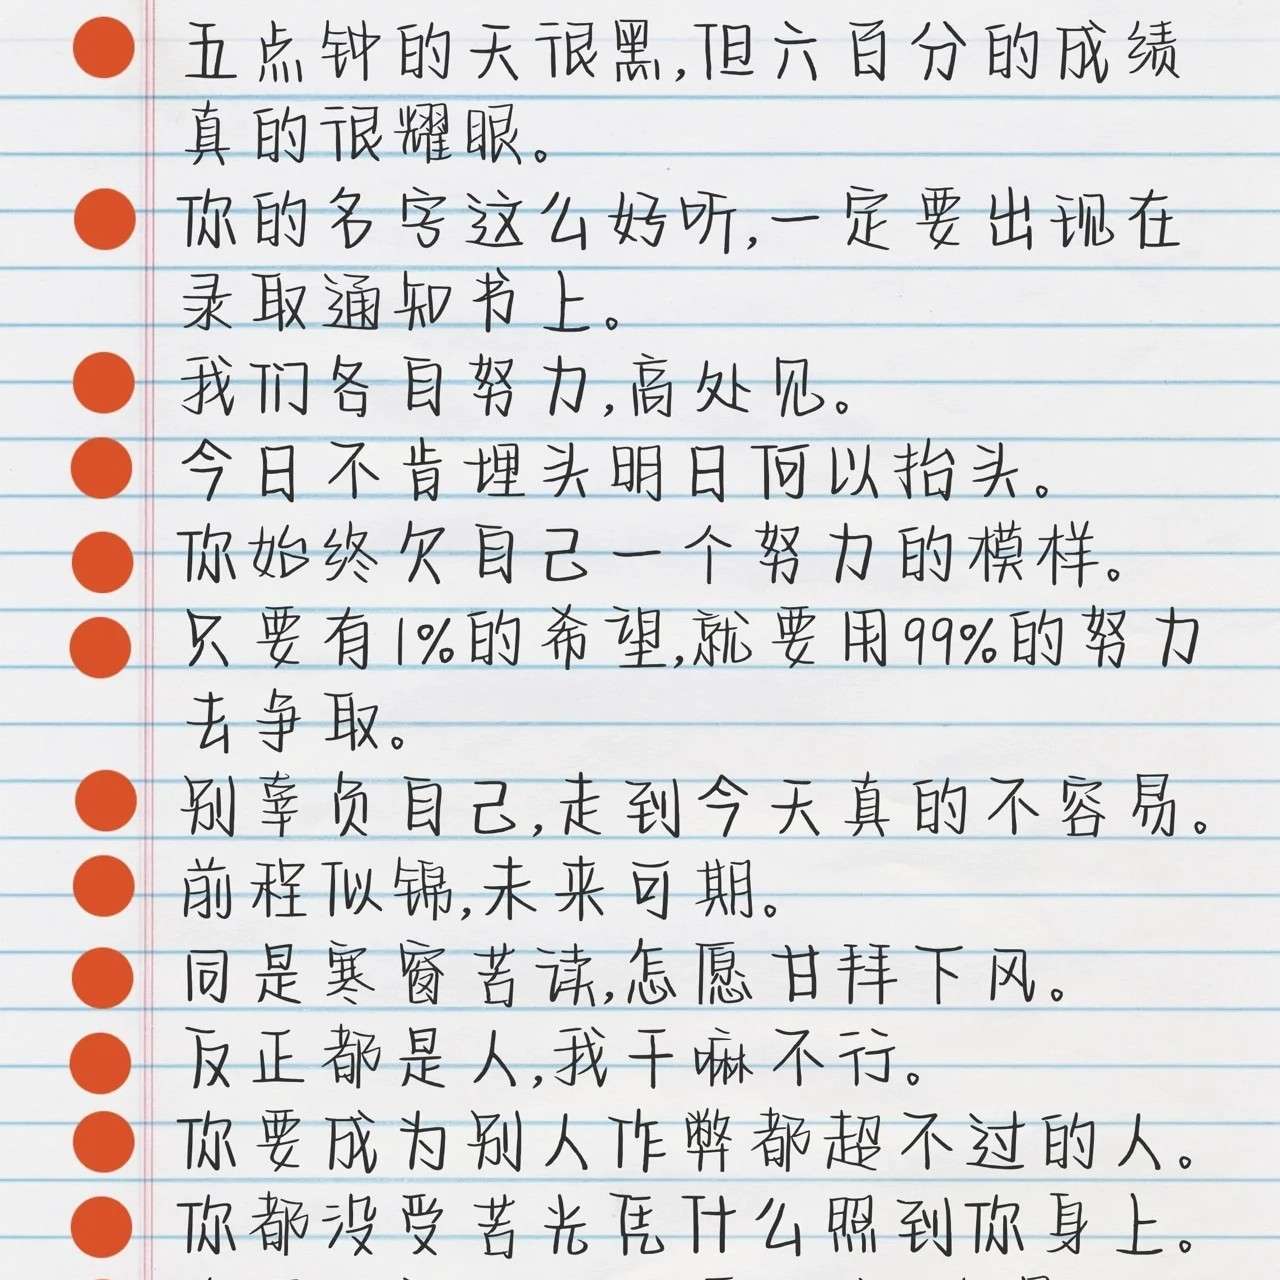 五点钟的天很黑,但六百分的成绩
真的很耀眼。
你的名字这么好听,一定要出现在
录取通知书上。
我们各自努力,高处见。
今日不肯埋头明日何以抬头。
你始终欠自己一个努力的模样。
只要有1%的希望,就要用99%的努力
去争取。
别辜负自己,走到今天真的不容易。
前程似锦,未来可期。
同是寒窗苦读,怎愿甘拜下风。
反正都是人,我干嘛不行。
你要成为别人作弊都超不过的人。
你都没受苦光凭什么照到你身上。